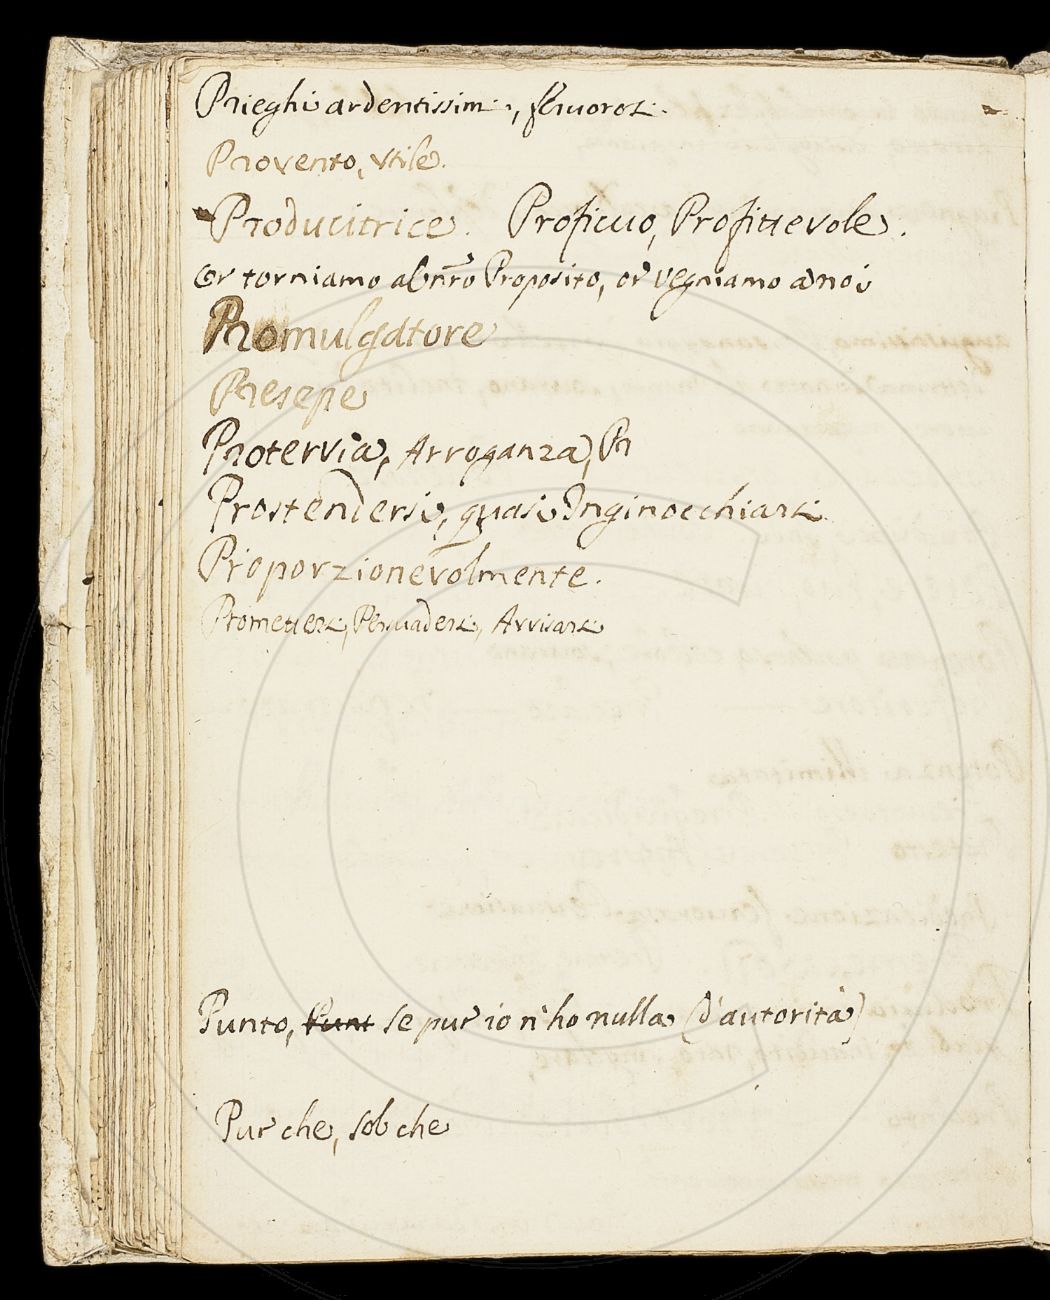 Prieghi ardentissimi, feruorosi.
Provento, Vtile.
Producitrice. Proficuo, Profittevole.
or torniamo al nrõ Proposito, or vegniamo a noi
Promulgatore
Presepe
Protervia, Arroganza, Pr
Prostendersi, quasi Inginocchiarsi
Proporzionevolmente.
Promettersi, Persuadersi, Avvisarsi
Punto, Punt se pur io n'ho nulla (d'autorità)
Pur che, sol che